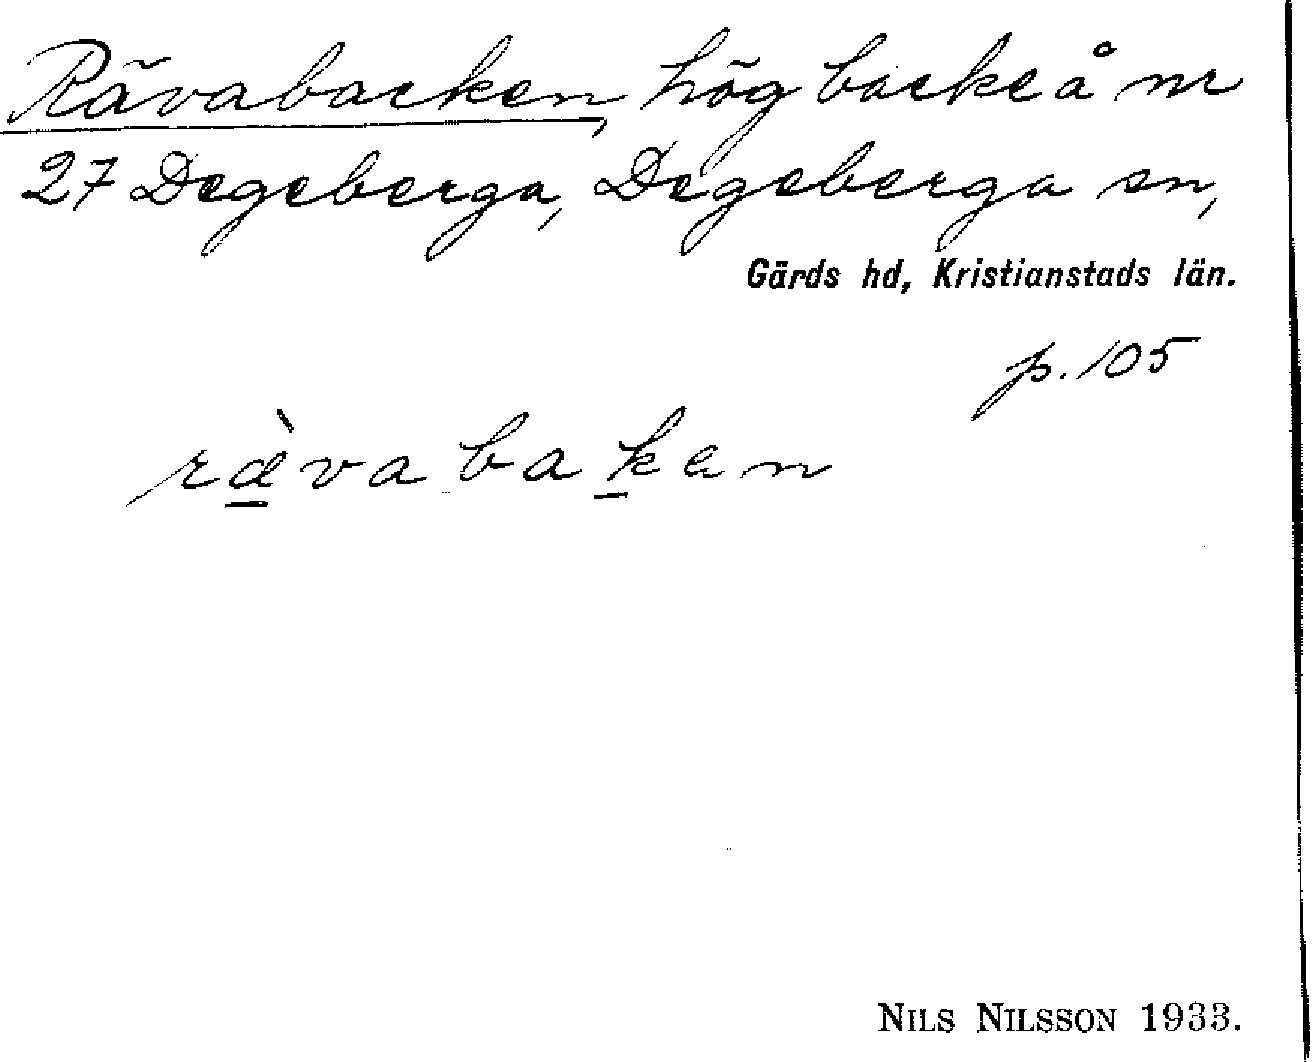 Rävabacken, hög backe å nr
27 Degeberga, Degeberga sn,
Gärds hd, Kristianstads län.
p. 105
ræ̱̀vabaḵen
NILS NILSSON 1933.